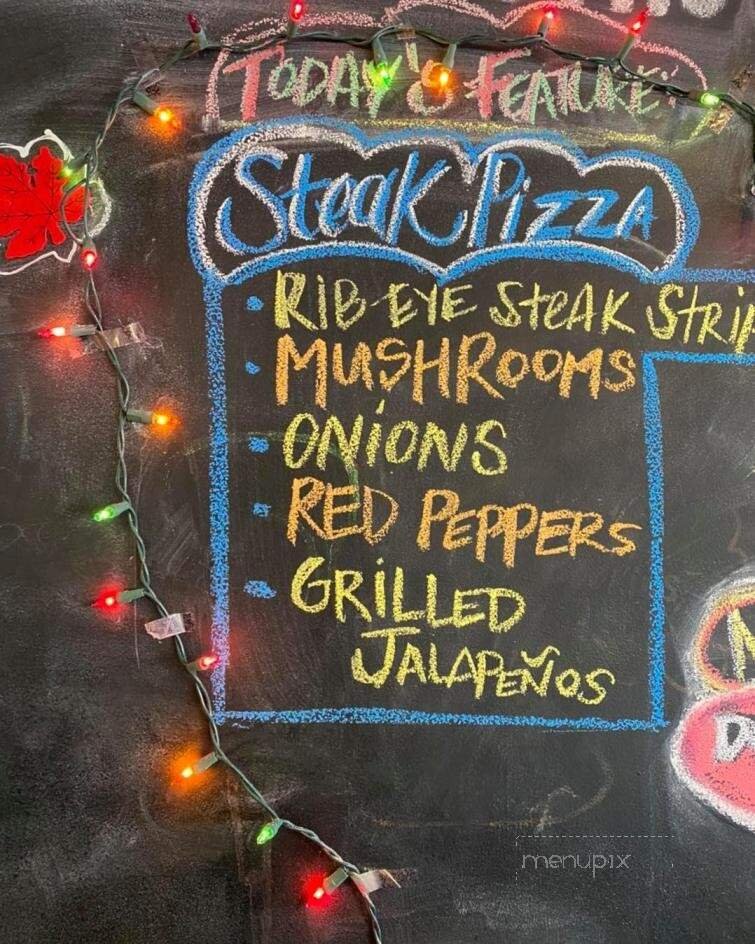 Today's Feature:
Steak Pizza
• Rib-Eye Steak Strip
• Mushrooms
• Onions
• Red Peppers
• Grilled
Jalapeños
menupix